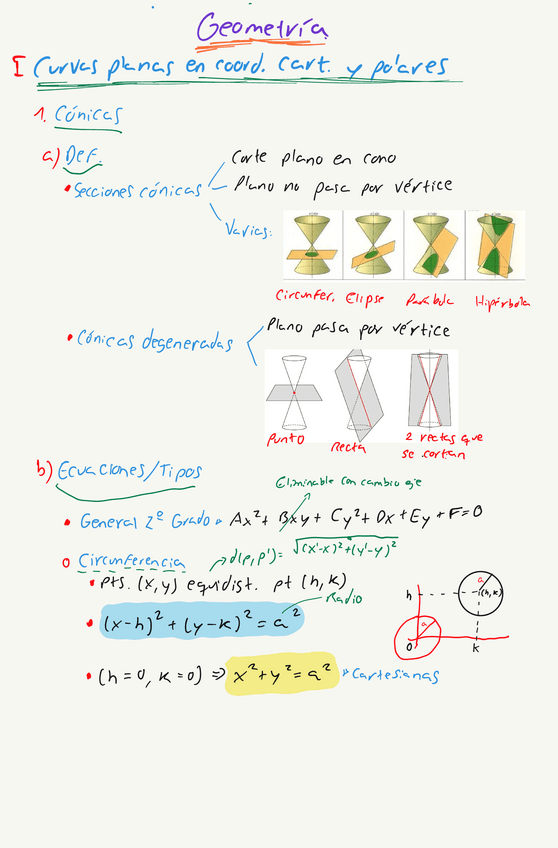 Geometría
I Curvas planas en coord. Cart. y polares
1. Cónicas
a) Def.
• Secciones cónicas
Corte plano en cono
Plano no pasa por vértice
Varias:
Circunfer. Elipse Parábola Hipérbola
• Cónicas degeneradas
Plano pasa por vértice
Punto Recta 2 rectas que
se cortan
b) Ecuaciones/Tipos
Eliminable con cambio eje
• General 2º Grado » Ax² + Bxy + Cy² + Dx + Ey + F = 0
o Circunferencia
d(P,P') = √(x'-x)² + (y'-y)²
• Pts. (x,y) equidist. pt (h,k)
Radio
• (x-h)² + (y-k)² = a²
a
h (h,k)
a
0 k
• (h=0, k=0) ⇒ x² + y² = a² » Cartesianas